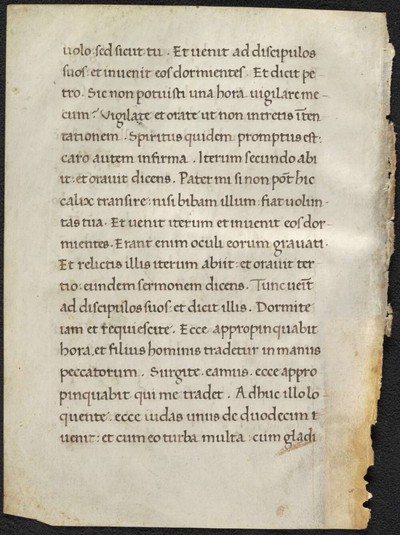 uolo: sed sicut tu. Et uenit ad discipulos
suos: et inuenit eos dormientes. Et dicit pe
tro. Sic non potuisti una hora uigilare me
cum? Vigilate et orate ut non intretis ītem
tationem. Spiritus quidem promptus est:
caro autem infirma. Iterum secundo abi
it: et orauit dicens. Pater mi si non pōt hic
calix transire: nisi bibam illum: fiat uolun
tas tua. Et uenit iterum et inuenit eos dor
mientes. Erant enim oculi eorum grauati.
Et relictis illis iterum abiit: et orauit ter
tio: eundem sermonem dicens. Tunc ueīt
ad discipulos suos: et dicit illis. Dormite
iam et requiescite. Ecce appropinquabit
hora: et filius hominis tradetur in manus
peccatorum. Surgite eamus. ecce appro
pinquabit qui me tradet. Adhuc illo lo
quente. ecce iudas unus de duodecim
uenit: et cum eo turba multa cum gladi